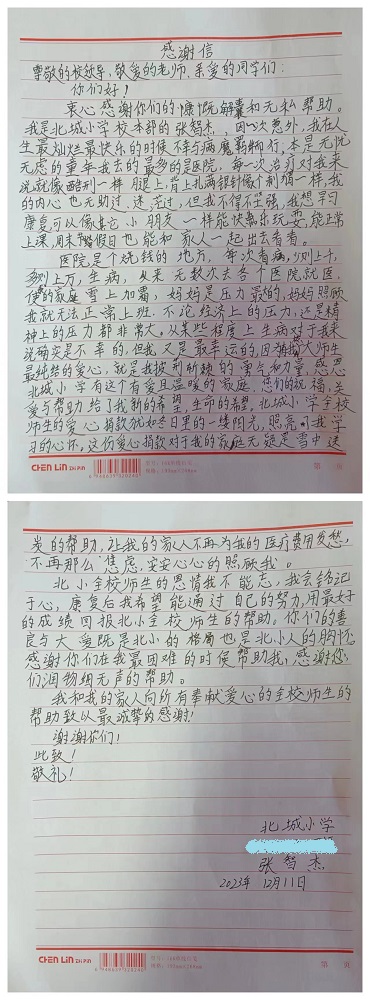 感谢信
尊敬的校领导，敬爱的老师，亲爱的同学们：
你们好！
衷心感谢你们的慷慨解囊和无私帮助。
我是北城小学校本部的张智杰，因一次意外，我在人
生最灿烂最快乐的时候不幸与病魔羁绊前行，本是无忧
无虑的童年我去的最多的是医院，每一次治疗对我来
说就像酷刑一样 腿上，背上扎满银针像个刺猬一样，我
的内心也无助过、迷茫过，但我不得不坚强，我想学习
康复可以像其它小朋友一样能快乐玩耍，能正常
上课，周末 假日也能和家人一起出去看看。
医院是个烧钱的地方，每次看病，少则上千，
多则上万，生病，以来无数次去各个医院就医，
使的家庭雪上加霜，妈妈是压力最的，妈妈照顾
我就无法正常上班，不论经济上的压力，还是精
神上的压力都非常大。从某些程度上生病对于我来
说确实是不幸的，但我又是最幸运的，因 大师生
最纯洁的爱心，就是我披荆斩棘的勇气和力量，感恩
北城小学有这个有爱且温暖的家庭，您们的祝福，关
爱与帮助给了我新的希望，生命的希望，北城小学全校
师生的爱心捐款犹如冬日里的一缕阳光，照亮了我学
习的心怀，这份爱心捐款对于我的家庭无疑是雪中送
CHEN LIN
6948639328240
第 页
炭的帮助，让我的家人不再为我的医疗费用发愁，
不再那么焦虑，安安心心的照顾我。
北小全校师生的恩情我不能忘，我会铭记
于心，康复后我希望能通过自己的努力，用最好
的成绩回报北小全校师生的帮助。你们的善
良与大爱既是北小的格局也是北小人的胸怀
感谢你们在我最困难的时候帮助我，感谢你
们润物细无声的帮助。
我和我的家人向所有奉献爱心的全校师生的
帮助致以最诚挚的感谢！
谢谢你们！
此致！
敬礼！
北城小学
张智杰
2023年 12月11日
CHEN LIN
6948639328240
第 页